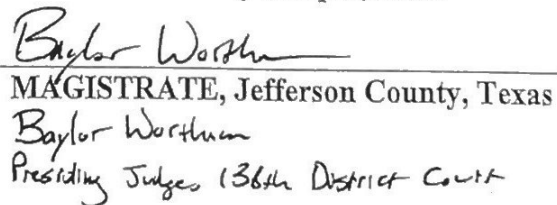 Baylor Wortham
MAGISTRATE, Jefferson County, Texas
Baylor Wortham
Presiding Judge, 136th District Court